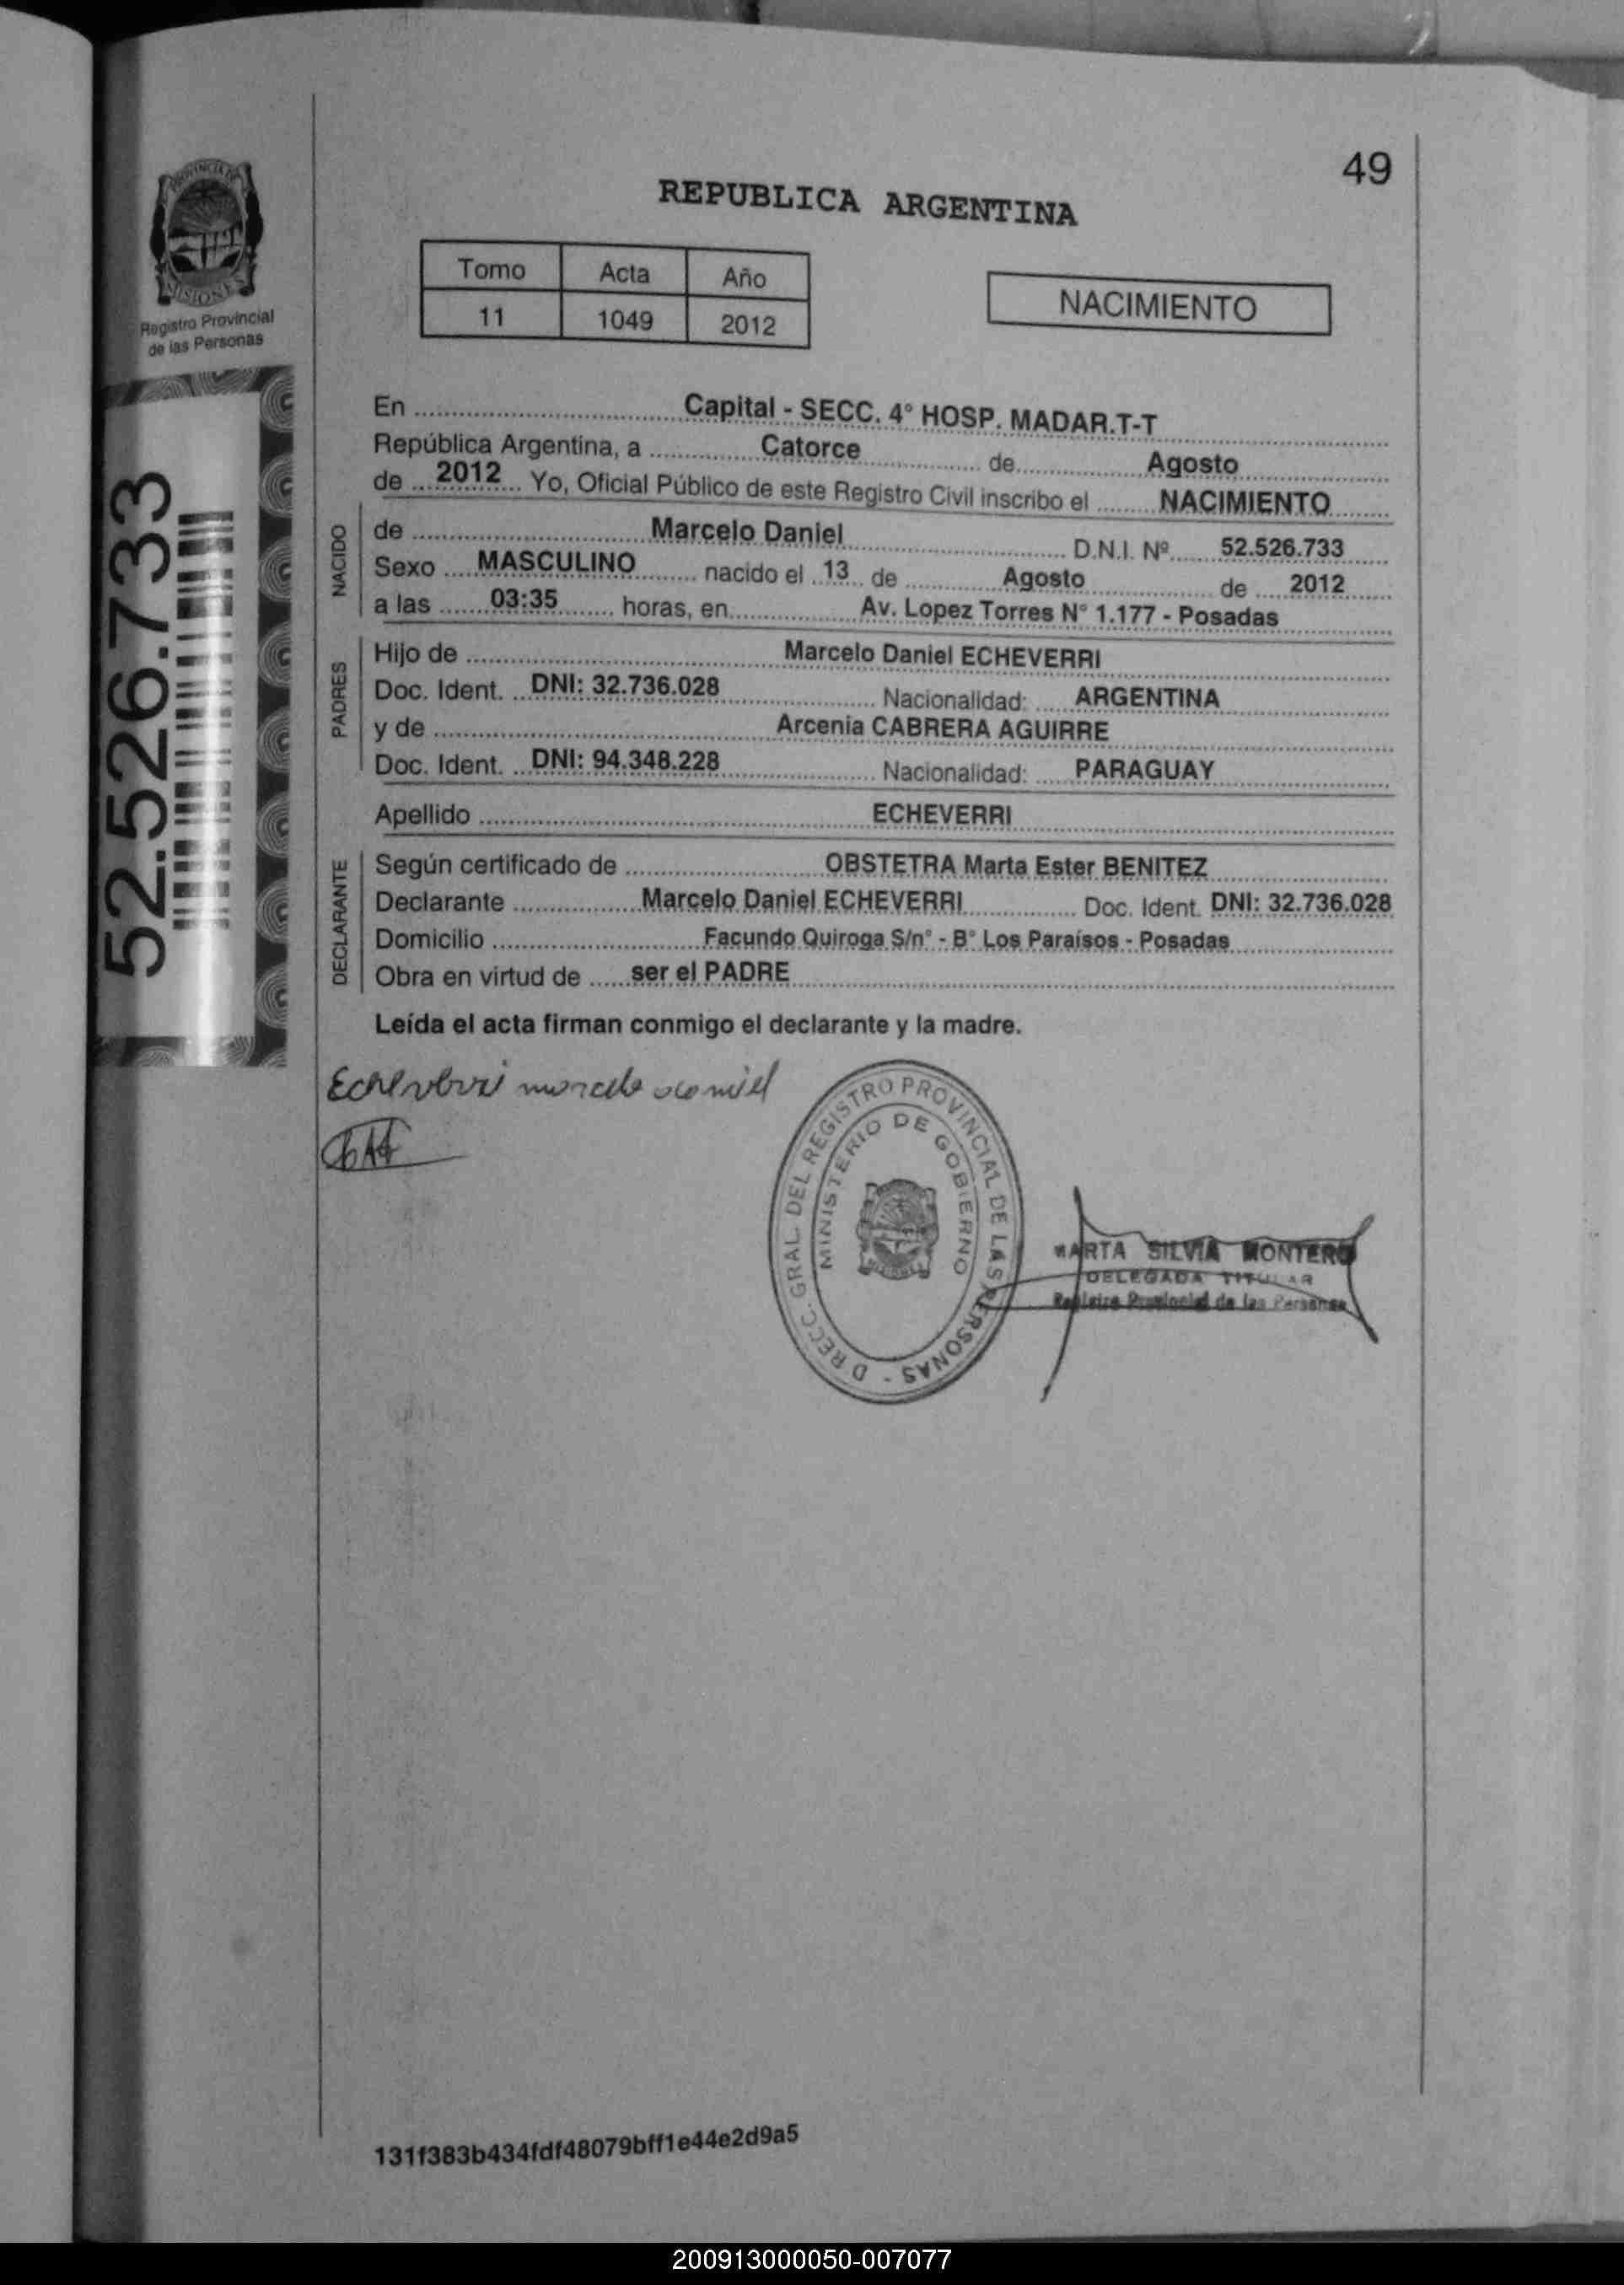 49
REPUBLICA ARGENTINA
PROVINCIA DE
MISIONES
Registro Provincial
de las Personas
Tomo Acta Año
11 1049 2012
NACIMIENTO
52.526.733
En Capital - SECC. 4° HOSP. MADAR.T-T
República Argentina, a Catorce de Agosto
de 2012 Yo, Oficial Público de este Registro Civil inscribo el NACIMIENTO
NACIDO
de Marcelo Daniel D.N.I. Nº 52.526.733
Sexo MASCULINO nacido el 13 de Agosto de 2012
a las 03:35 horas, en Av. Lopez Torres N° 1.177 - Posadas
PADRES
Hijo de Marcelo Daniel ECHEVERRI
Doc. Ident. DNI: 32.736.028 Nacionalidad: ARGENTINA
y de Arcenia CABRERA AGUIRRE
Doc. Ident. DNI: 94.348.228 Nacionalidad: PARAGUAY
Apellido ECHEVERRI
DECLARANTE
Según certificado de OBSTETRA Marta Ester BENITEZ
Declarante Marcelo Daniel ECHEVERRI Doc. Ident. DNI: 32.736.028
Domicilio Facundo Quiroga S/n° - B° Los Paraísos - Posadas
Obra en virtud de ser el PADRE
Leída el acta firman conmigo el declarante y la madre.
DIRECC. GRAL. DEL REGISTRO PROVINCIAL DE LAS PERSONAS -
MINISTERIO DE GOBIERNO
MARTA SILVIA MONTERO
DELEGADA TITULAR
Registro Provincial de las Personas
131f383b434fdf48079bff1e44e2d9a5
200913000050-007077